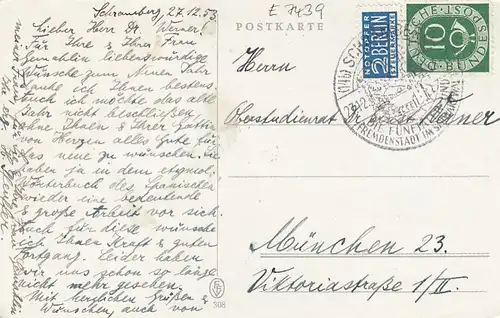 Schramberg, 27.12.53
Lieber Herr Dr. Werner!
Für Ihre & Ihrer Frau
Gemahlin liebenswürdige
Wünsche zum Neuen Jahr
danke ich Ihnen bestens.
Auch ich möchte das alte
Jahr nicht beschließen,
ohne Ihnen & Ihrer Gattin
von Herzen alles Gute für
das neue zu wünschen. Sie
haben ja in dem etymol.
Wörterbuch des Spanischen
wieder eine bedeutende
& große Arbeit vor sich.
Auch für diese wünsche
ich Ihnen Kraft & guten
Fortgang. Leider haben
wir uns schon so lange
nicht mehr gesehen.
Mit herzlichen Grüßen &
Wünschen, auch von
meiner
E 7439
POSTKARTE
Herrn
Oberstudienrat Dr. Ernst Werner
München 23.
Viktoriastraße 1/II.
NOTOPFER
2 BERLIN
STEUERMARKE
DEUTSCHE BUNDESPOST
10
(14b)
FREUDENSTADT IM
308